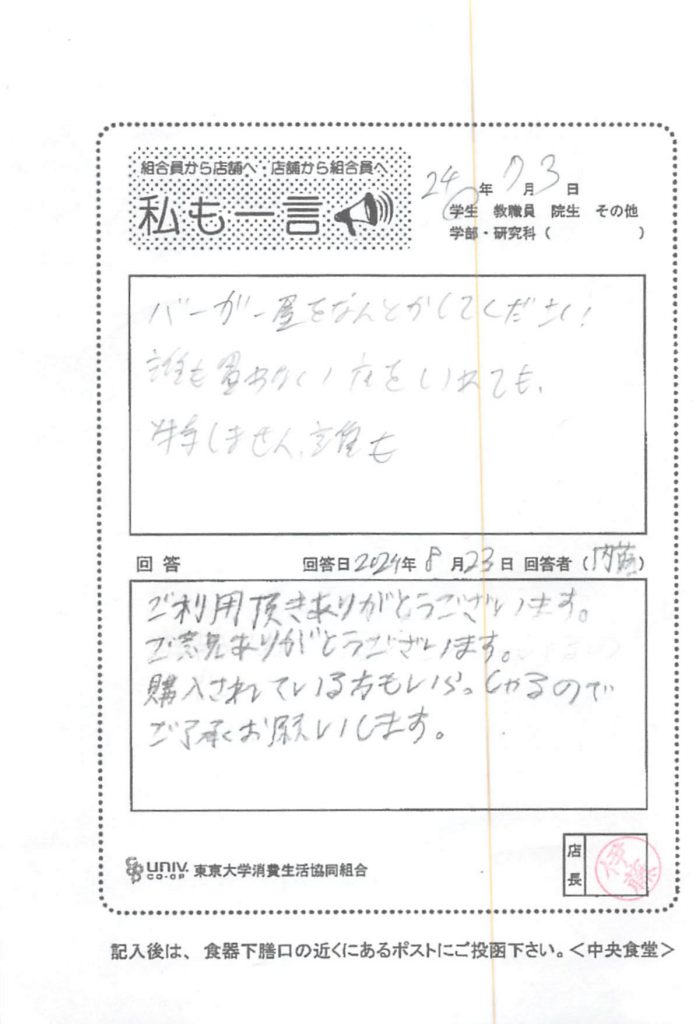 組合員から店舗へ 店舗から組合員へ
私も一言
24年 7月 3日
学生 教職員 院生 その他
学部・研究科( )
バーガー屋をなんとかしてください!
誰も買わない店をいれても、
得しません、誰も
回答 回答日2024年 8月23日 回答者(内藤)
ご利用頂きありがとうございます。
ご意見ありがとうございます。
購入されている方もいらっしゃるので
ご了承お願いします。
UNIV.
CO-OP
東京大学消費生活協同組合
店長
伊藤
記入後は、食器下膳口の近くにあるポストにご投函下さい。<中央食堂>